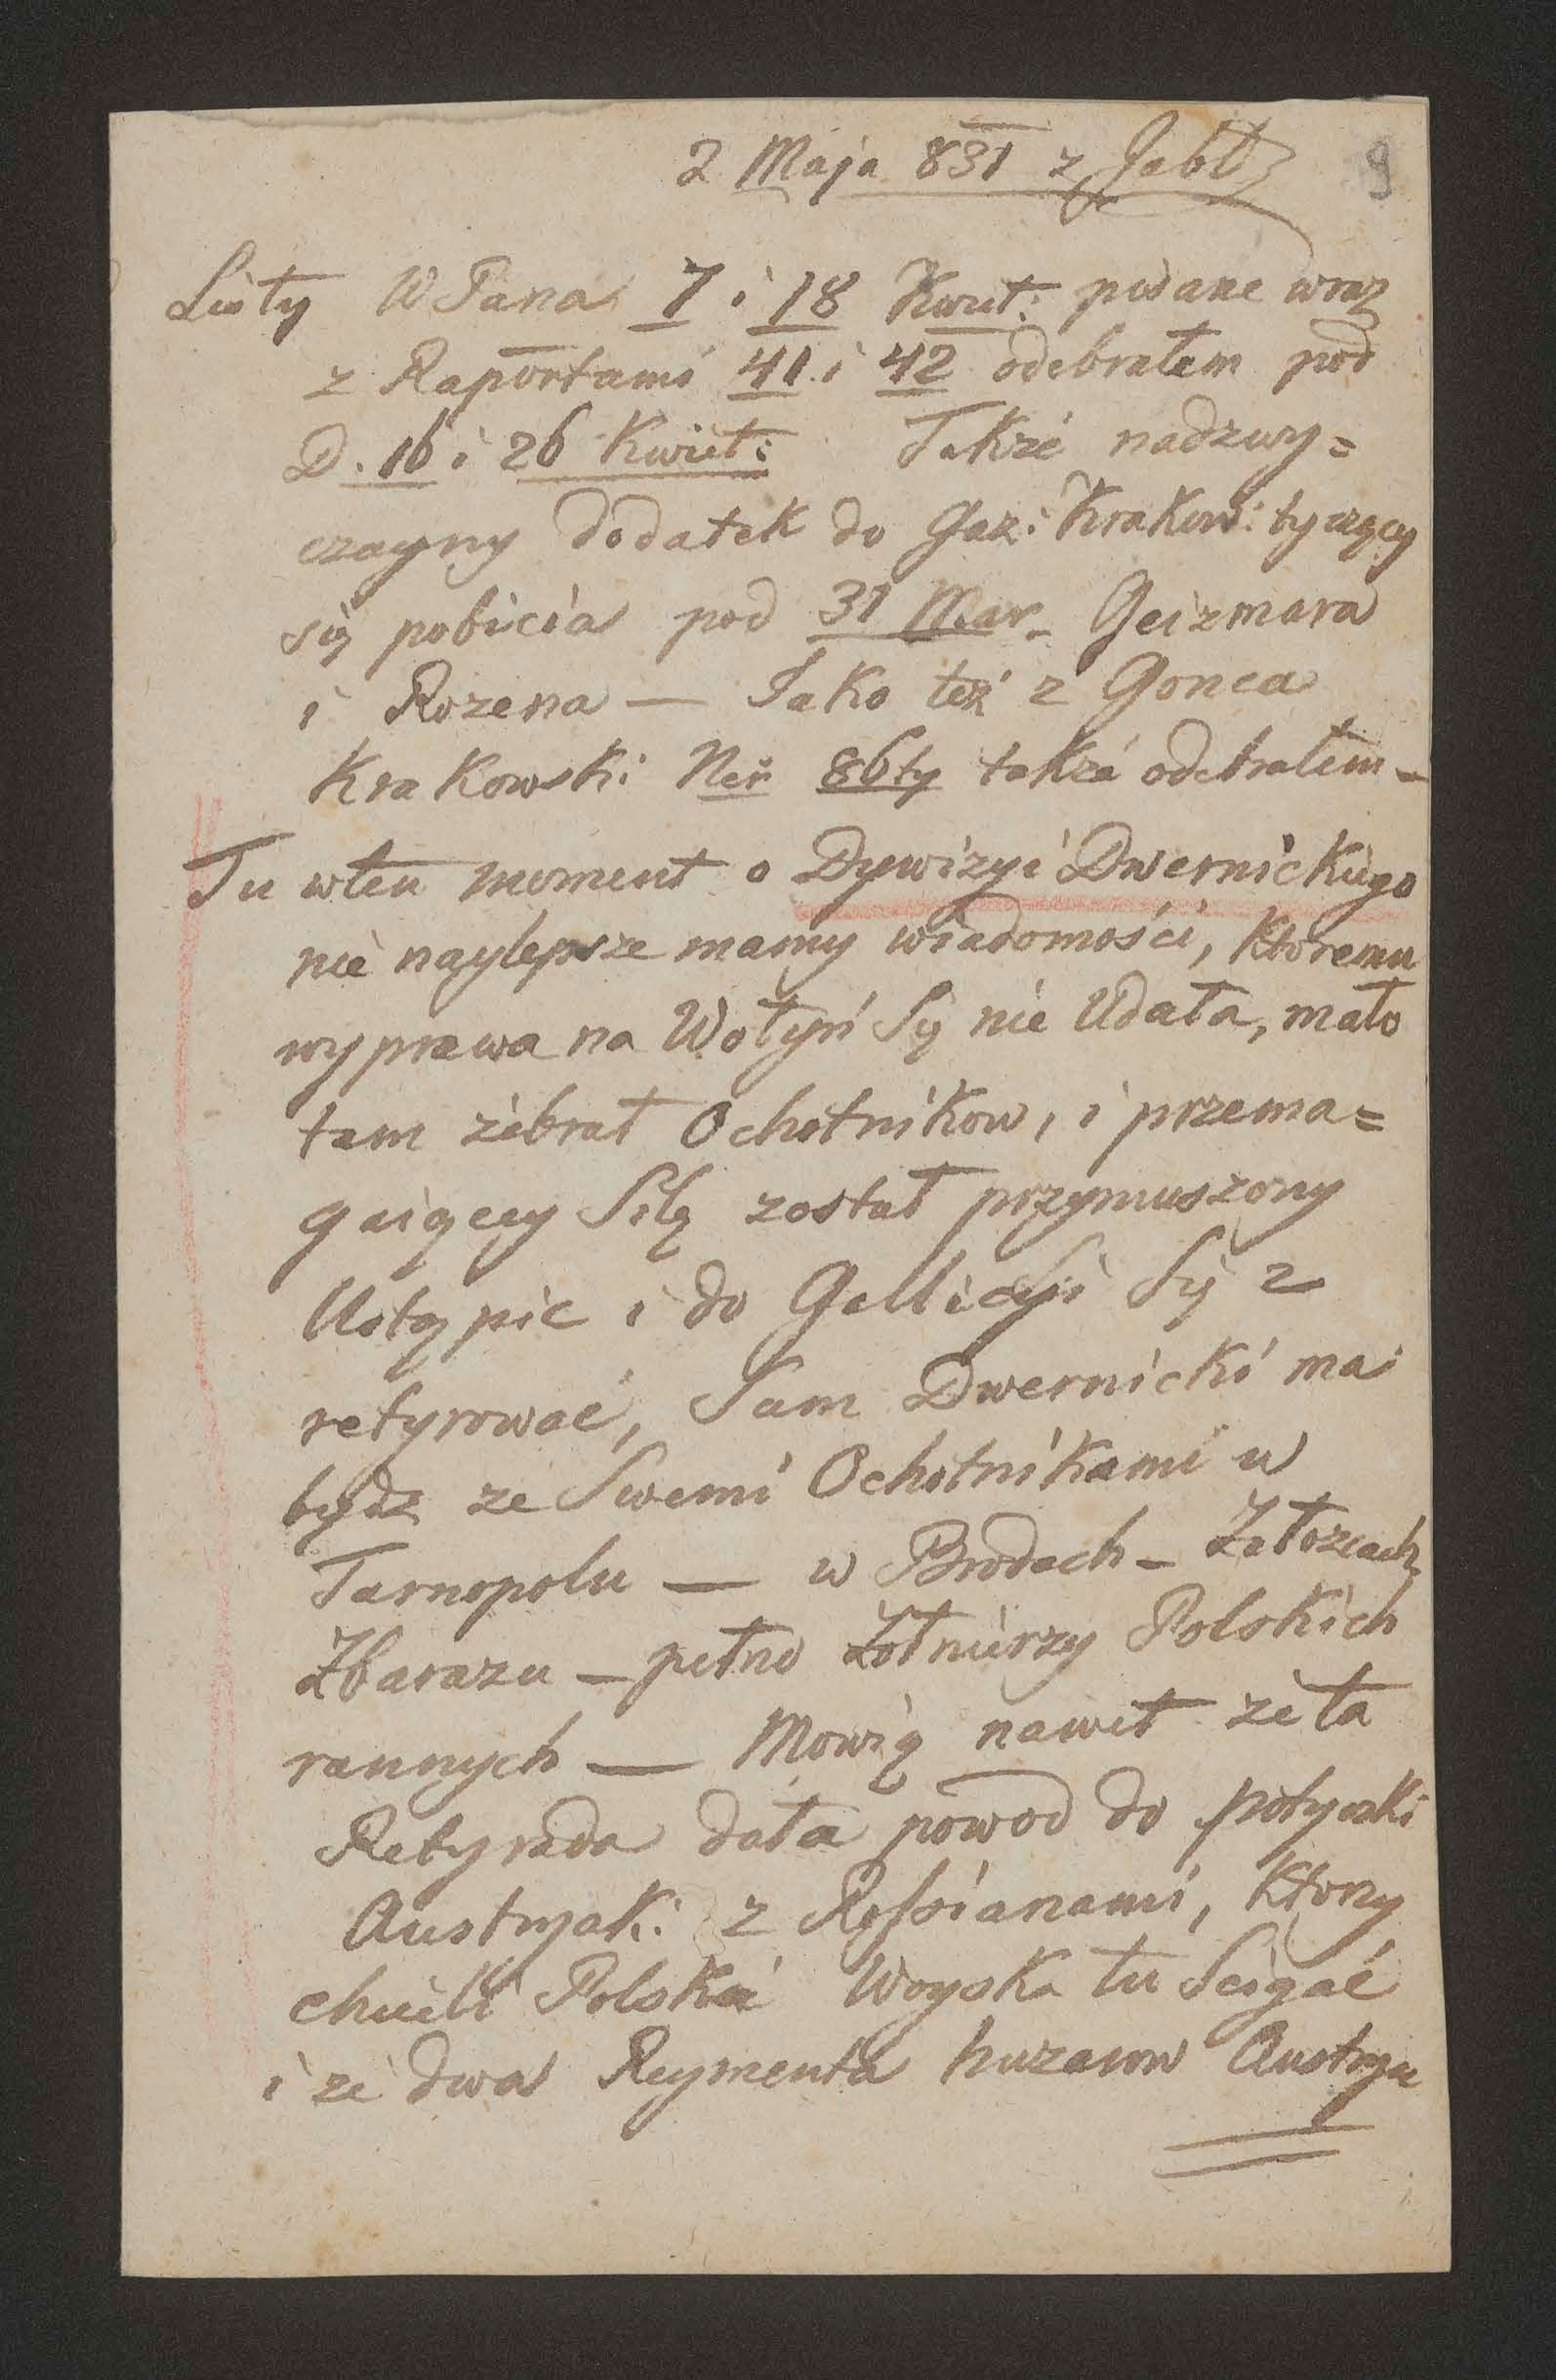 2 Maja 831 z Jabł
9
Listy WPana 7 i 18 Kwiet: pisane wraz
z Raportami 41 i 42 odebrałem pod
D. 16 i 26 Kwiet: Także nadzwy=
czayny dodatek do Gaz: Krakow: tyczący
się pobicia pod 31 Mar. Geizmara
i Rozena — Jako też z Gonca
Krakowski Ner 86ty także odebrałem —
Tu wten moment o Dywizyi Dwernickiego
nie naylepsze mamy wiadomości, ktoremu
wyprawa na Wołyń Się nie Udała, mało
tam zebrał Ochotnikow, i przema=
gaiącey Siłą został przymuszony
Ustąpic i do Gallicyi Się z
retyrować, Sam Dwernicki ma
bydz ze Swemi Ochotnikami w
Tarnopolu — w Brodach — Załozcach,
Zbarazu — pełno Żołnierzy Polskich
rannych — Mowią nawet że ta
Retyrada dała powod do potyczki
Austryak: z Rossianami, ktorzy
chcieli Polskie Woyska tu Scigać
i że dwa Reymenta huzarow Austrya